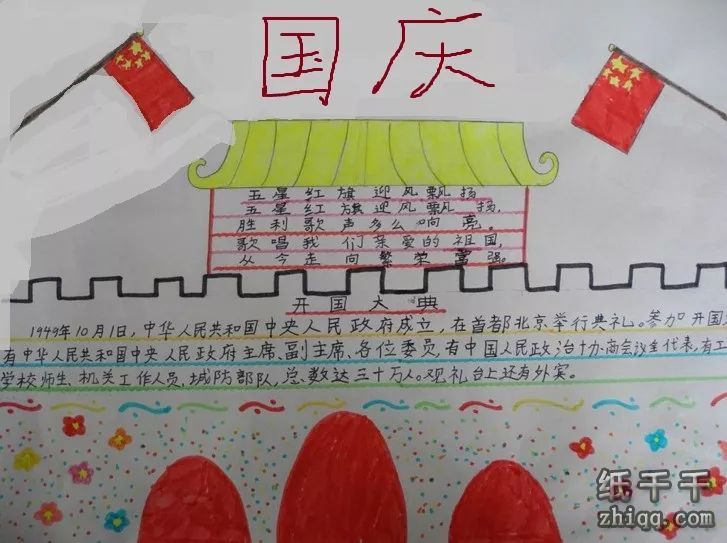 国庆
五星红旗迎风飘扬
五星红旗迎风飘扬,
胜利歌声多么响亮。
歌唱我们亲爱的祖国,
从今走向繁荣富强。
开国大典
1949年10月1日,中华人民共和国中央人民政府成立,在首都北京举行典礼。参加开国
有中华人民共和国中央人民政府主席、副主席、各位委员,有中国人民政治协商会议全体代表,有工
学校师生、机关工作人员,城防部队,总数达三十万人。观礼台上还有外宾。
纸千千
zhiqq.com